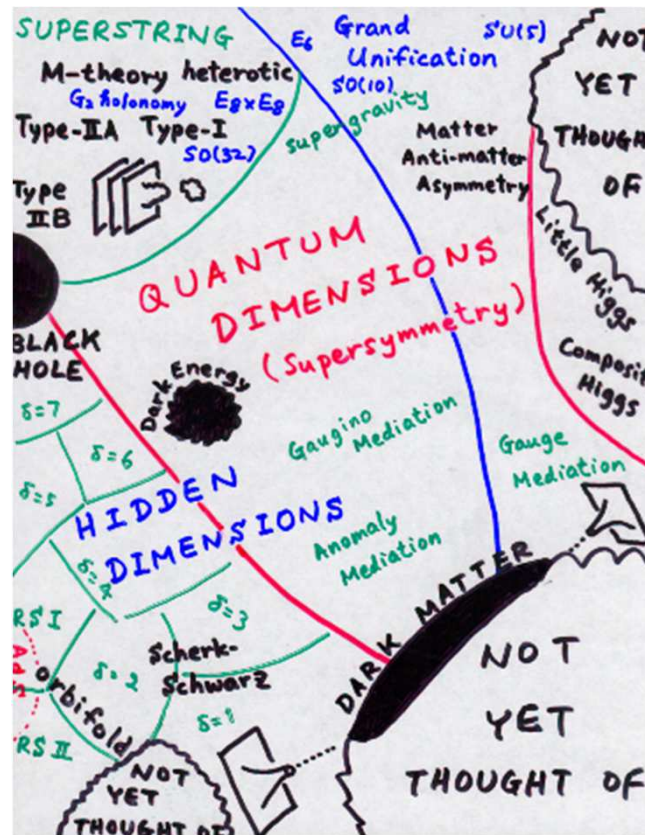 SUPERSTRING
M-theory heterotic
G₂ holonomy E8×E8
Type-IIA Type-I
SO(32)
Type
IIB
E6 Grand
Unification
SU(5)
SO(10)
supergravity
Matter
Anti-matter
Asymmetry
NOT
YET
THOUGH
OF
Little Higgs
Composit
Higgs
QUANTUM
DIMENSIONS
(Supersymmetry)
BLACK
HOLE
Dark Energy
Gaugino
Mediation
Gauge
Mediation
Anomaly
Mediation
HIDDEN
DIMENSIONS
δ=7
δ=6
δ=5
δ=4
δ=3
δ=2
δ=1
RS I
AdS
RS II
orbifold
Scherk-
Schwarz
DARK MATTER
NOT
YET
THOUGHT OF
NOT
YET
THOUGHT OF